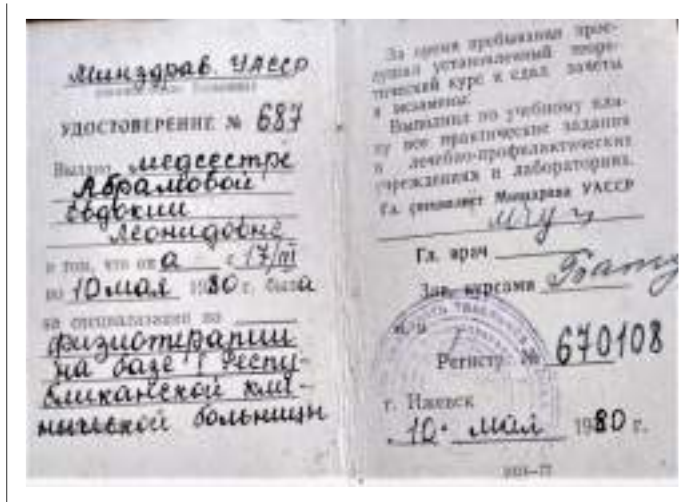 Минздрав УАССР
УДОСТОВЕРЕНИЕ № 687
Выдано медсестре
Абрамовой
Евдокии
Леонидовне
в том, что он а с 17/III
по 10 мая 1980 г. была
на специализации по
физиотерапии
на базе I Респу-
бликанской кли-
нической больницы
За время пребывания прос-
лушал установленный теоре-
тический курс и сдал зачеты
и экзамены.
Выполнил по учебному пла-
ну все практические задания
в лечебно-профилактических
учреждениях и лабораториях.
Гл. специалист Минздрава УАССР
Гл. врач
Зав. курсами
м/п
Регистр. № 670108
г. Ижевск
10. мая 1980 г.